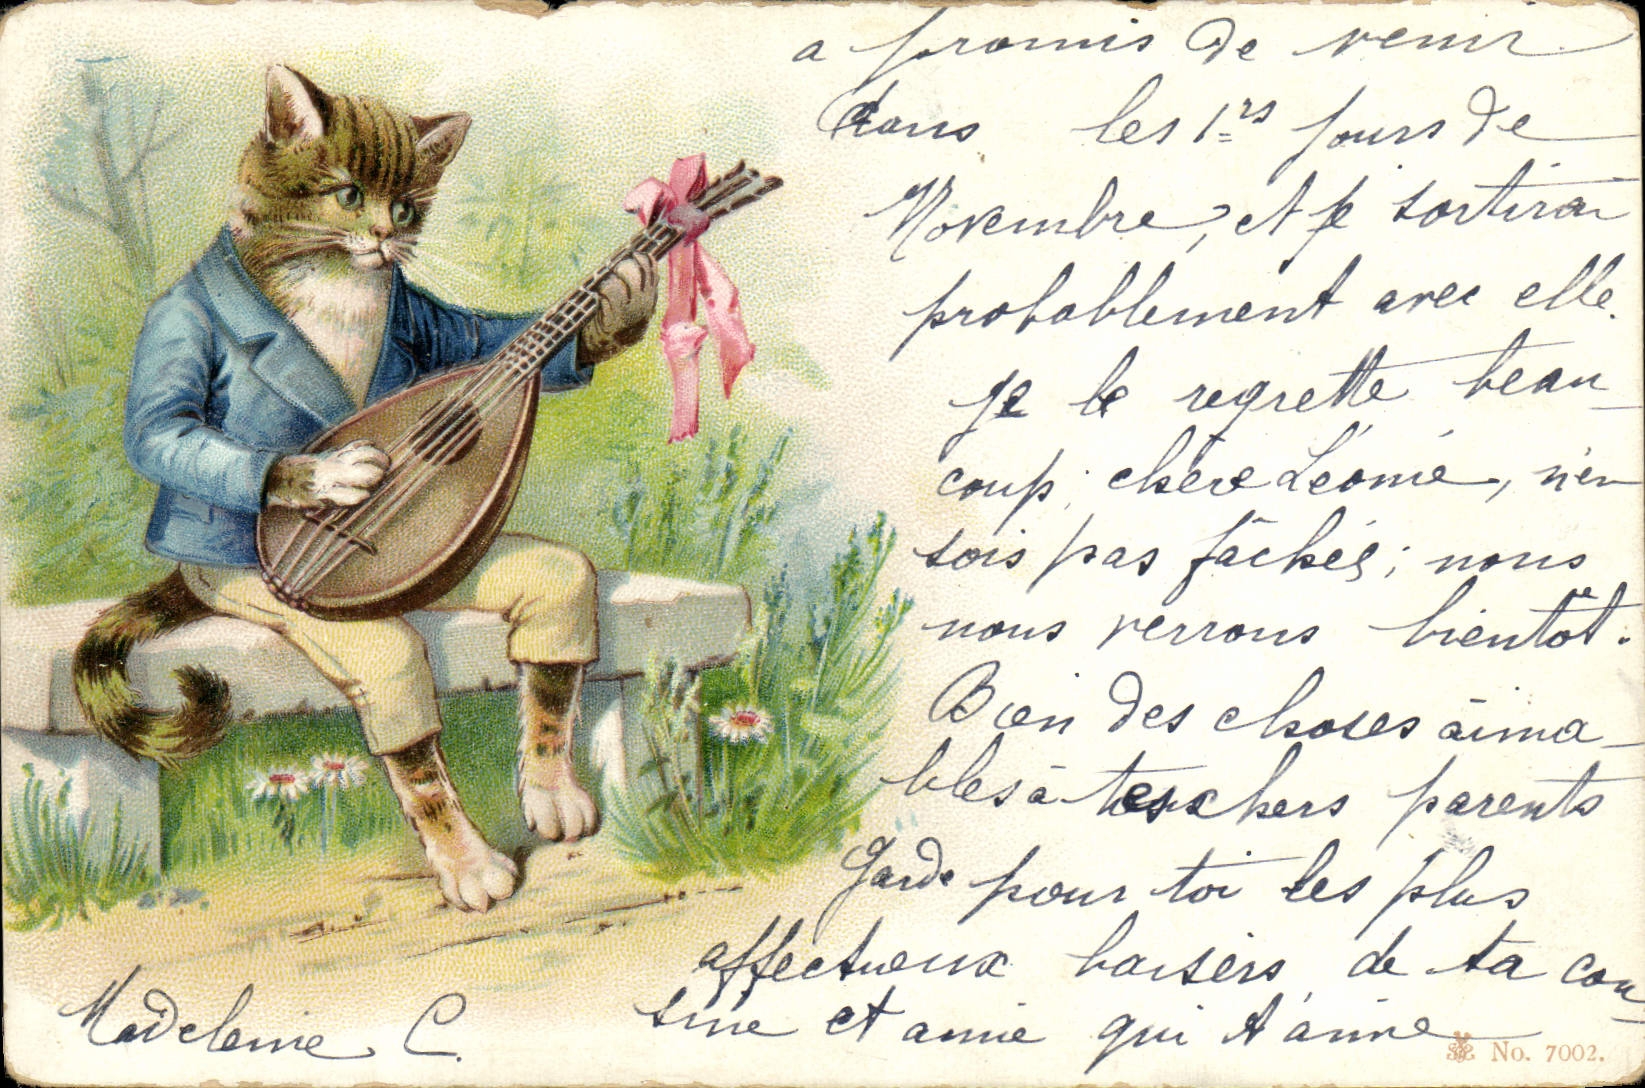 a promis de venir
dans les 1ers jours de
Novembre, et je sortirai
probablement avec elle.
je le regrette beau-
coup, chère Léonie, n'en
sois pas fâchée; nous
nous verrons bientôt.
Bien des choses aima-
bles à tes chers parents
Garde pour toi les plus
affectueux baisers de ta cou-
sine et amie qui t'aime
Madeleine C.
No. 7002.